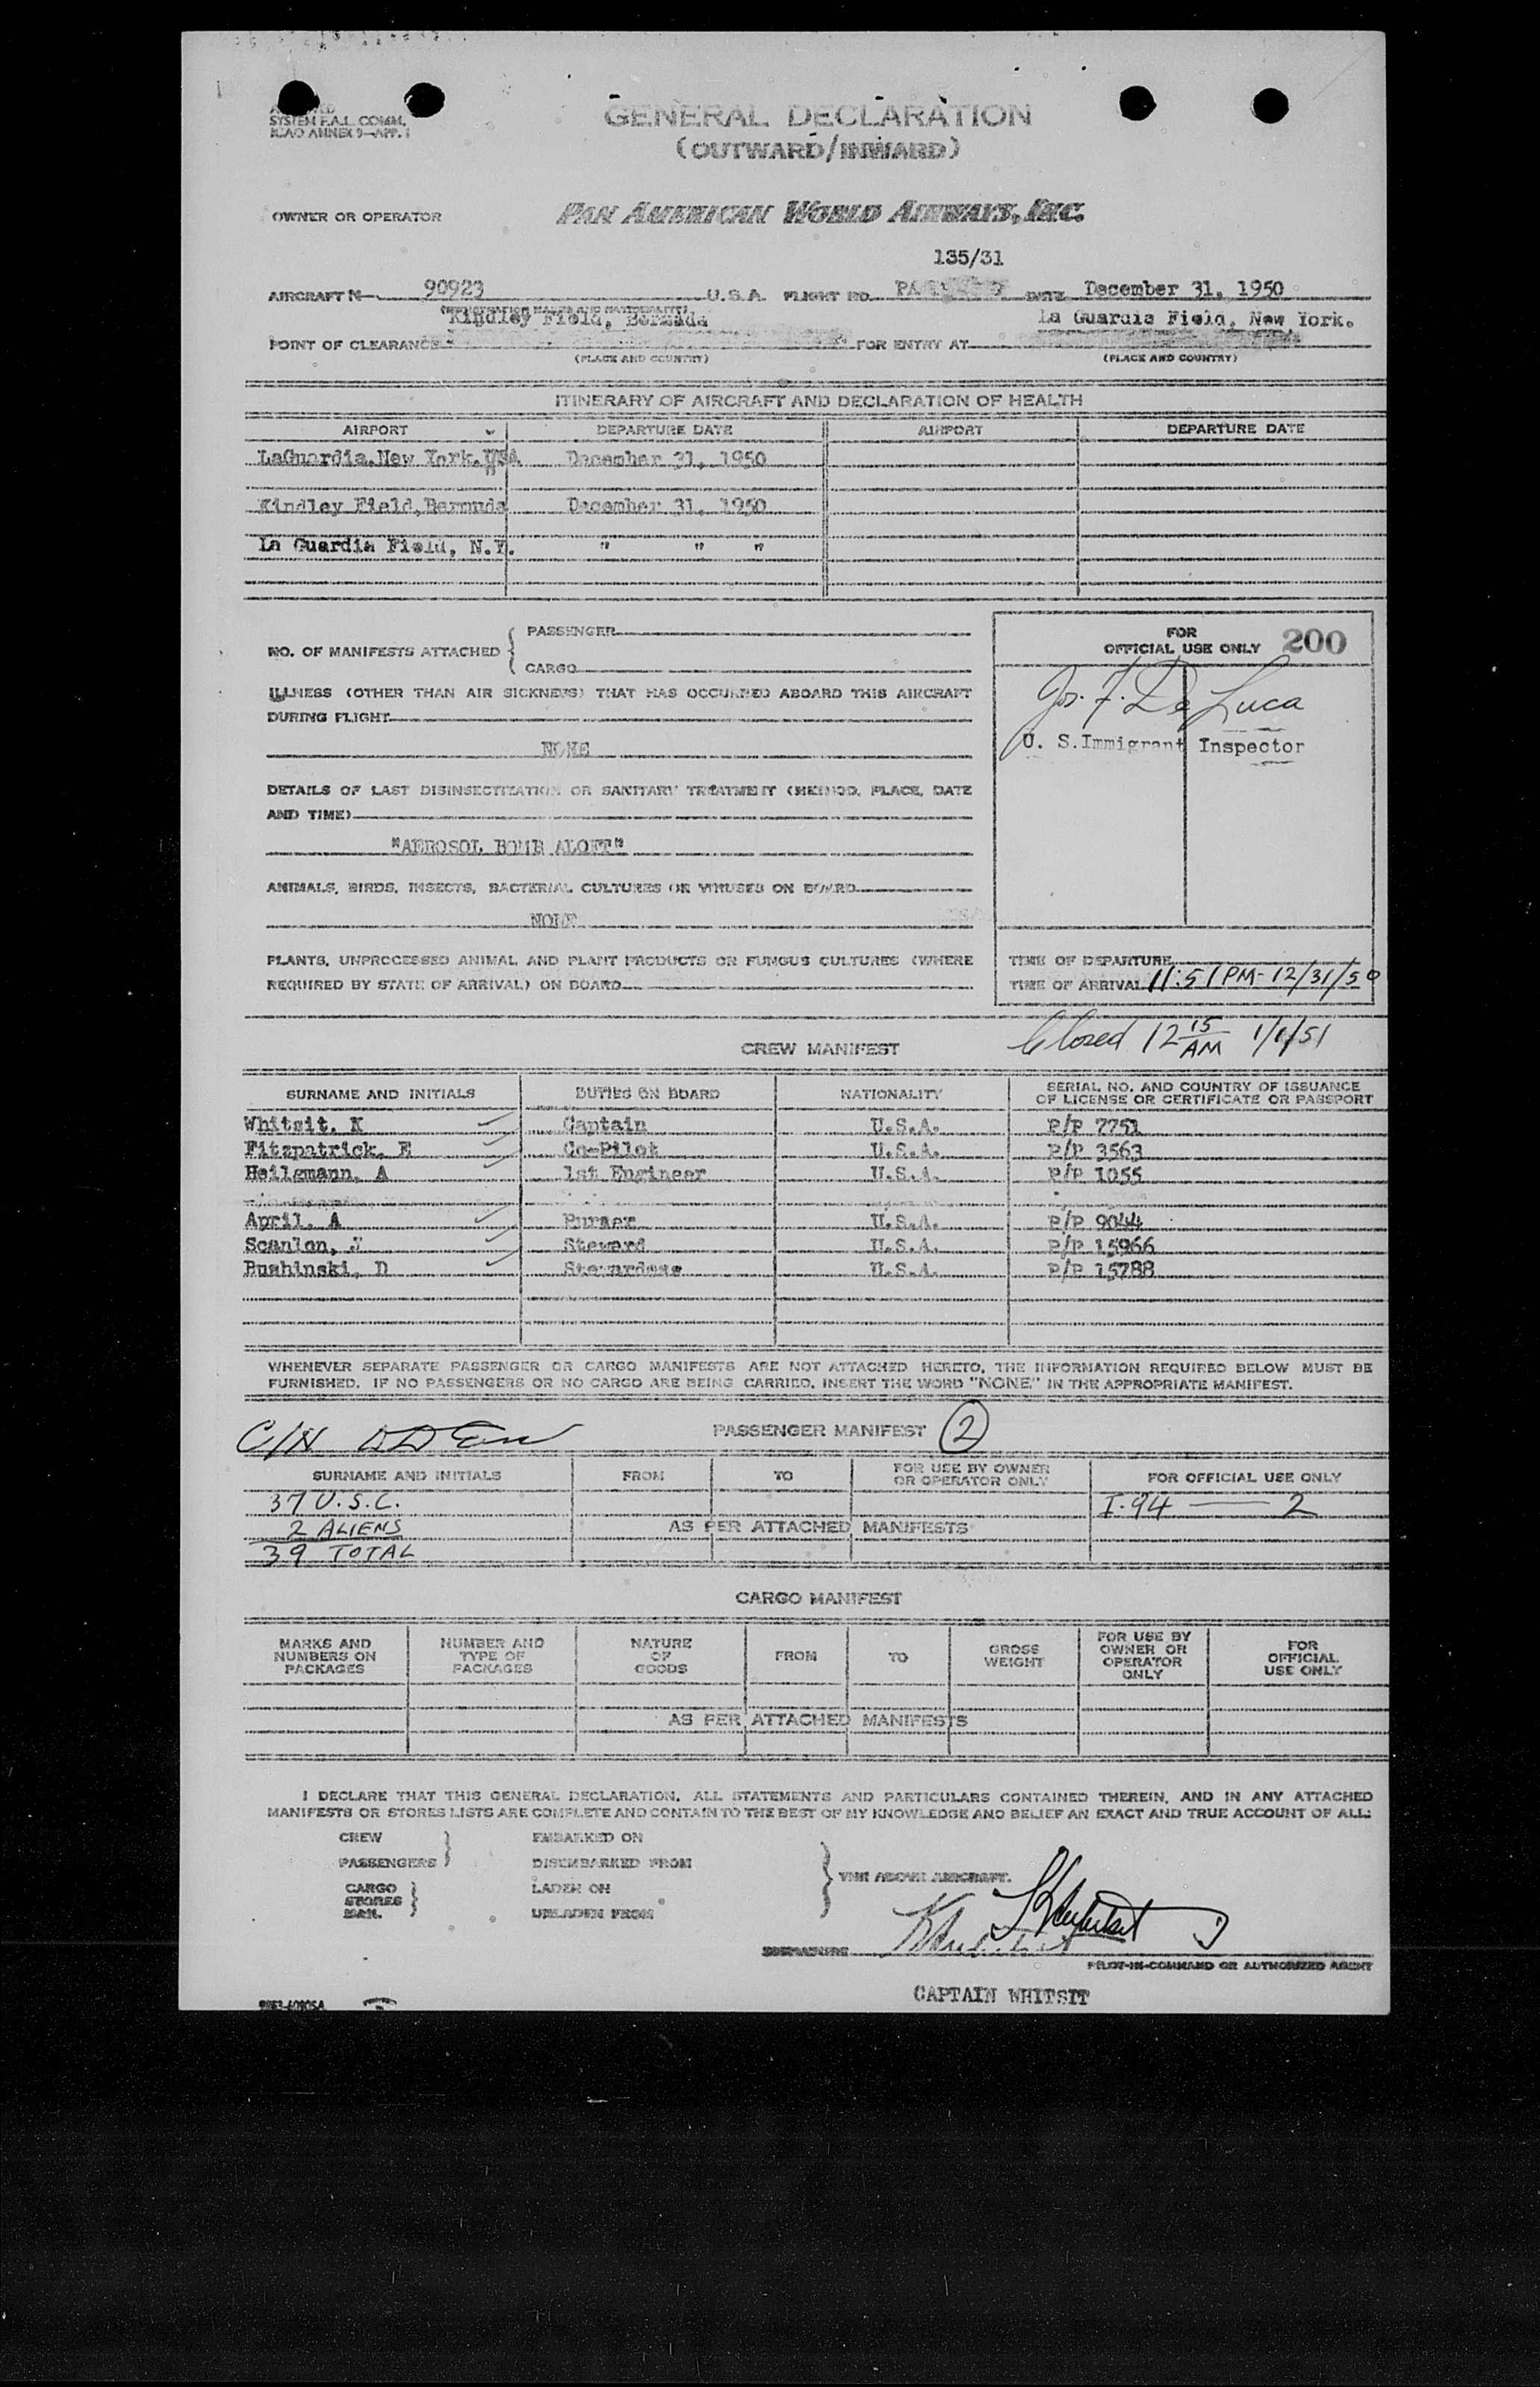 SYSTEM F.A.L. COMM.
ICAO ANNEX 9—APP. 1
GENERAL DECLARATION
(OUTWARD/INWARD)
OWNER OR OPERATOR
PAN AMERICAN WORLD AIRWAYS, INC.
135/31
AIRCRAFT N- 90923 U.S.A. FLIGHT NO. PA DATE December 31, 1950
Kindley Field, Bermuda La Guardia Field, New York.
POINT OF CLEARANCE FOR ENTRY AT
(PLACE AND COUNTRY) (PLACE AND COUNTRY)
ITINERARY OF AIRCRAFT AND DECLARATION OF HEALTH
AIRPORT DEPARTURE DATE AIRPORT DEPARTURE DATE
LaGuardia, New York, USA December 31, 1950
Kindley Field, Bermuda December 31, 1950
La Guardia Field, N.Y. " " "
NO. OF MANIFESTS ATTACHED { PASSENGER
CARGO
ILLNESS (OTHER THAN AIR SICKNESS) THAT HAS OCCURRED ABOARD THIS AIRCRAFT
DURING FLIGHT
NONE
DETAILS OF LAST DISINSECTIZATION OR SANITARY TREATMENT (METHOD, PLACE, DATE
AND TIME)
"AEROSOL BOMB ALOFT"
ANIMALS, BIRDS, INSECTS, BACTERIAL CULTURES OR VIRUSES ON BOARD
NONE
PLANTS, UNPROCESSED ANIMAL AND PLANT PRODUCTS OR FUNGUS CULTURES (WHERE
REQUIRED BY STATE OF ARRIVAL) ON BOARD
FOR
OFFICIAL USE ONLY 200
Jos. F. De Luca
U. S. Immigrant Inspector
TIME OF DEPARTURE
TIME OF ARRIVAL 11:51 PM- 12/31/50
Closed 12 15 AM 1/1/51
CREW MANIFEST
SURNAME AND INITIALS DUTIES ON BOARD NATIONALITY SERIAL NO. AND COUNTRY OF ISSUANCE
OF LICENSE OR CERTIFICATE OR PASSPORT
Whitsit, K Captain U.S.A. P/P 7751
Fitzpatrick, E Co-Pilot U.S.A. P/P 3563
Heilgmann, A 1st Engineer U.S.A. P/P 1055
April, A Purser U.S.A. P/P 9044
Scanlon, J Steward U.S.A. P/P 15966
Buahinski, D Stewardess U.S.A. P/P 15788
WHENEVER SEPARATE PASSENGER OR CARGO MANIFESTS ARE NOT ATTACHED HERETO, THE INFORMATION REQUIRED BELOW MUST BE
FURNISHED. IF NO PASSENGERS OR NO CARGO ARE BEING CARRIED, INSERT THE WORD "NONE" IN THE APPROPRIATE MANIFEST.
PASSENGER MANIFEST 2
SURNAME AND INITIALS FROM TO FOR USE BY OWNER
OR OPERATOR ONLY FOR OFFICIAL USE ONLY
37 U.S.C. I-94 — 2
2 ALIENS AS PER ATTACHED MANIFESTS
39 TOTAL
CARGO MANIFEST
MARKS AND
NUMBERS ON
PACKAGES
NUMBER AND
TYPE OF
PACKAGES
NATURE
OF
GOODS
FROM
TO
GROSS
WEIGHT
FOR USE BY
OWNER OR
OPERATOR
ONLY
FOR
OFFICIAL
USE ONLY
AS PER ATTACHED MANIFESTS
I DECLARE THAT THIS GENERAL DECLARATION, ALL STATEMENTS AND PARTICULARS CONTAINED THEREIN, AND IN ANY ATTACHED
MANIFESTS OR STORES LISTS ARE COMPLETE AND CONTAIN TO THE BEST OF MY KNOWLEDGE AND BELIEF AN EXACT AND TRUE ACCOUNT OF ALL:
CREW EMBARKED ON
PASSENGERS DISEMBARKED FROM
THE ABOVE AIRCRAFT.
CARGO LADEN ON
STORES
MAIL UNLADEN FROM
SIGNATURE K Whitsit
PILOT-IN-COMMAND OR AUTHORIZED AGENT
CAPTAIN WHITSIT